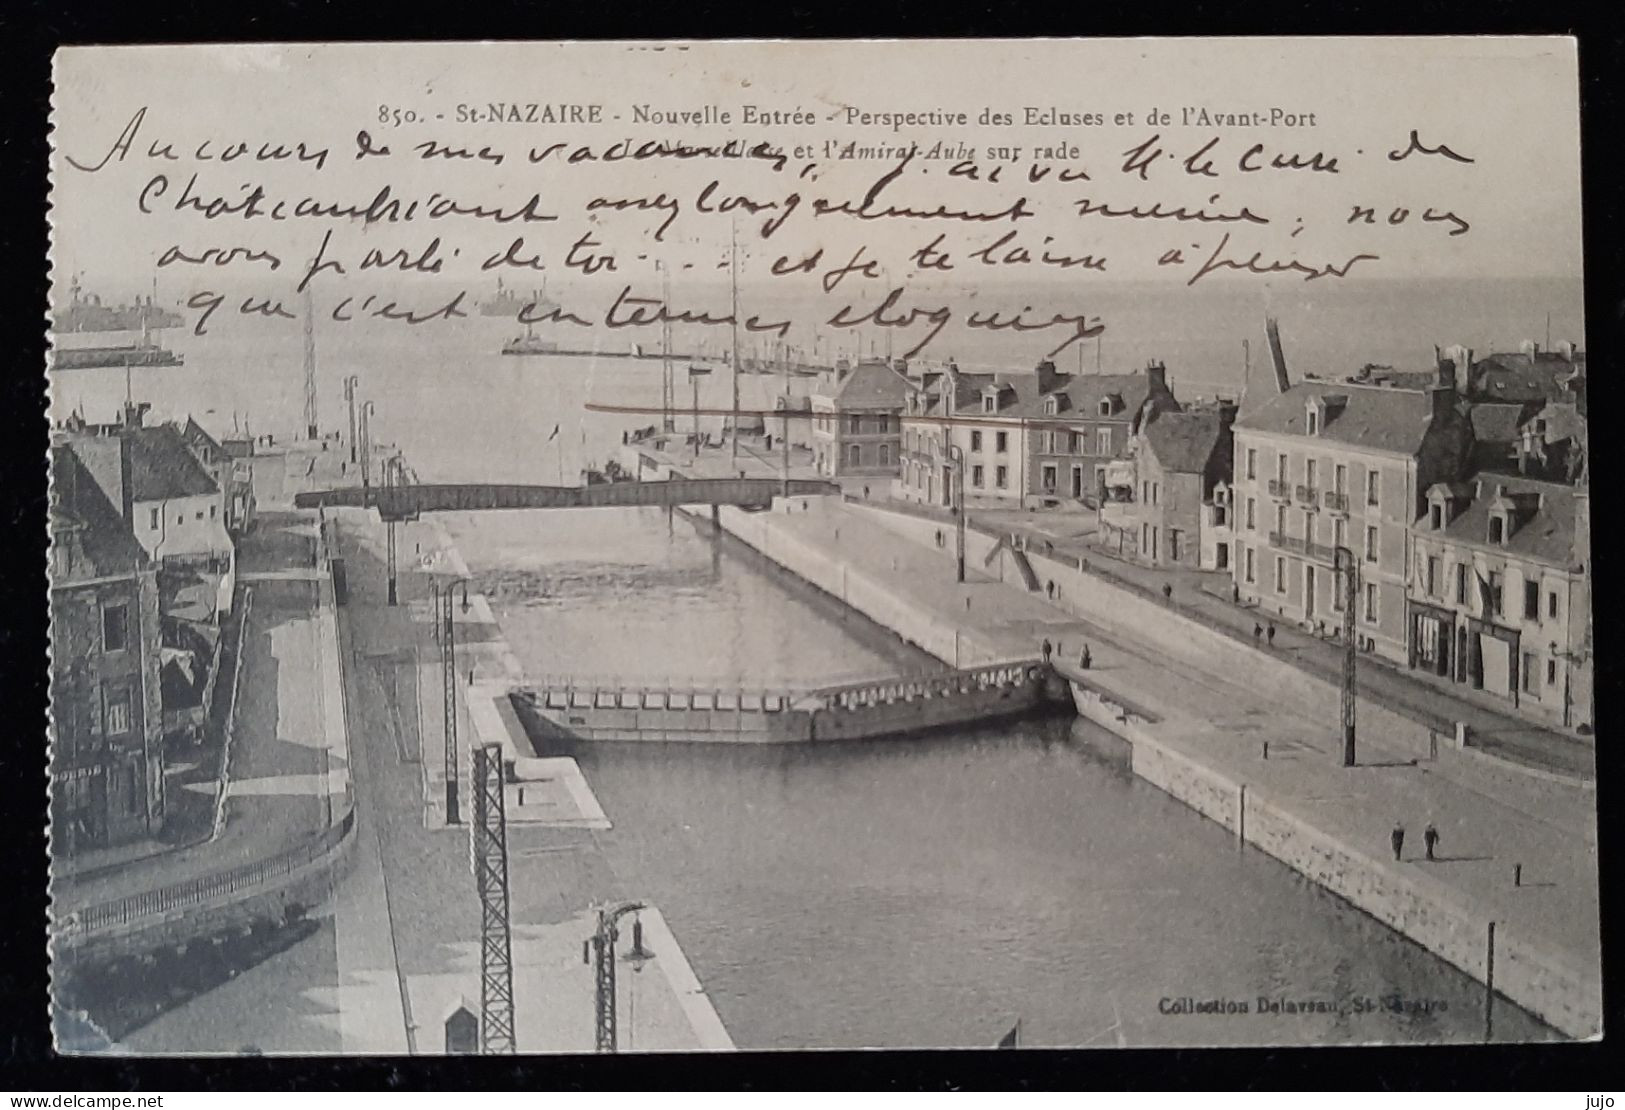 850. - St-NAZAIRE - Nouvelle Entrée - Perspective des Ecluses et de l'Avant-Port
et l'Amiral-Aube sur rade
Au cours de mes vacances, j'ai vu M. le Curé de
Châteaubriant assez longuement même ; nous
avons parlé de toi . . . et je te laisse à penser
que c'est en termes elogieux
Collection Delaveau, St-Nazaire
delcampe.net
jujo